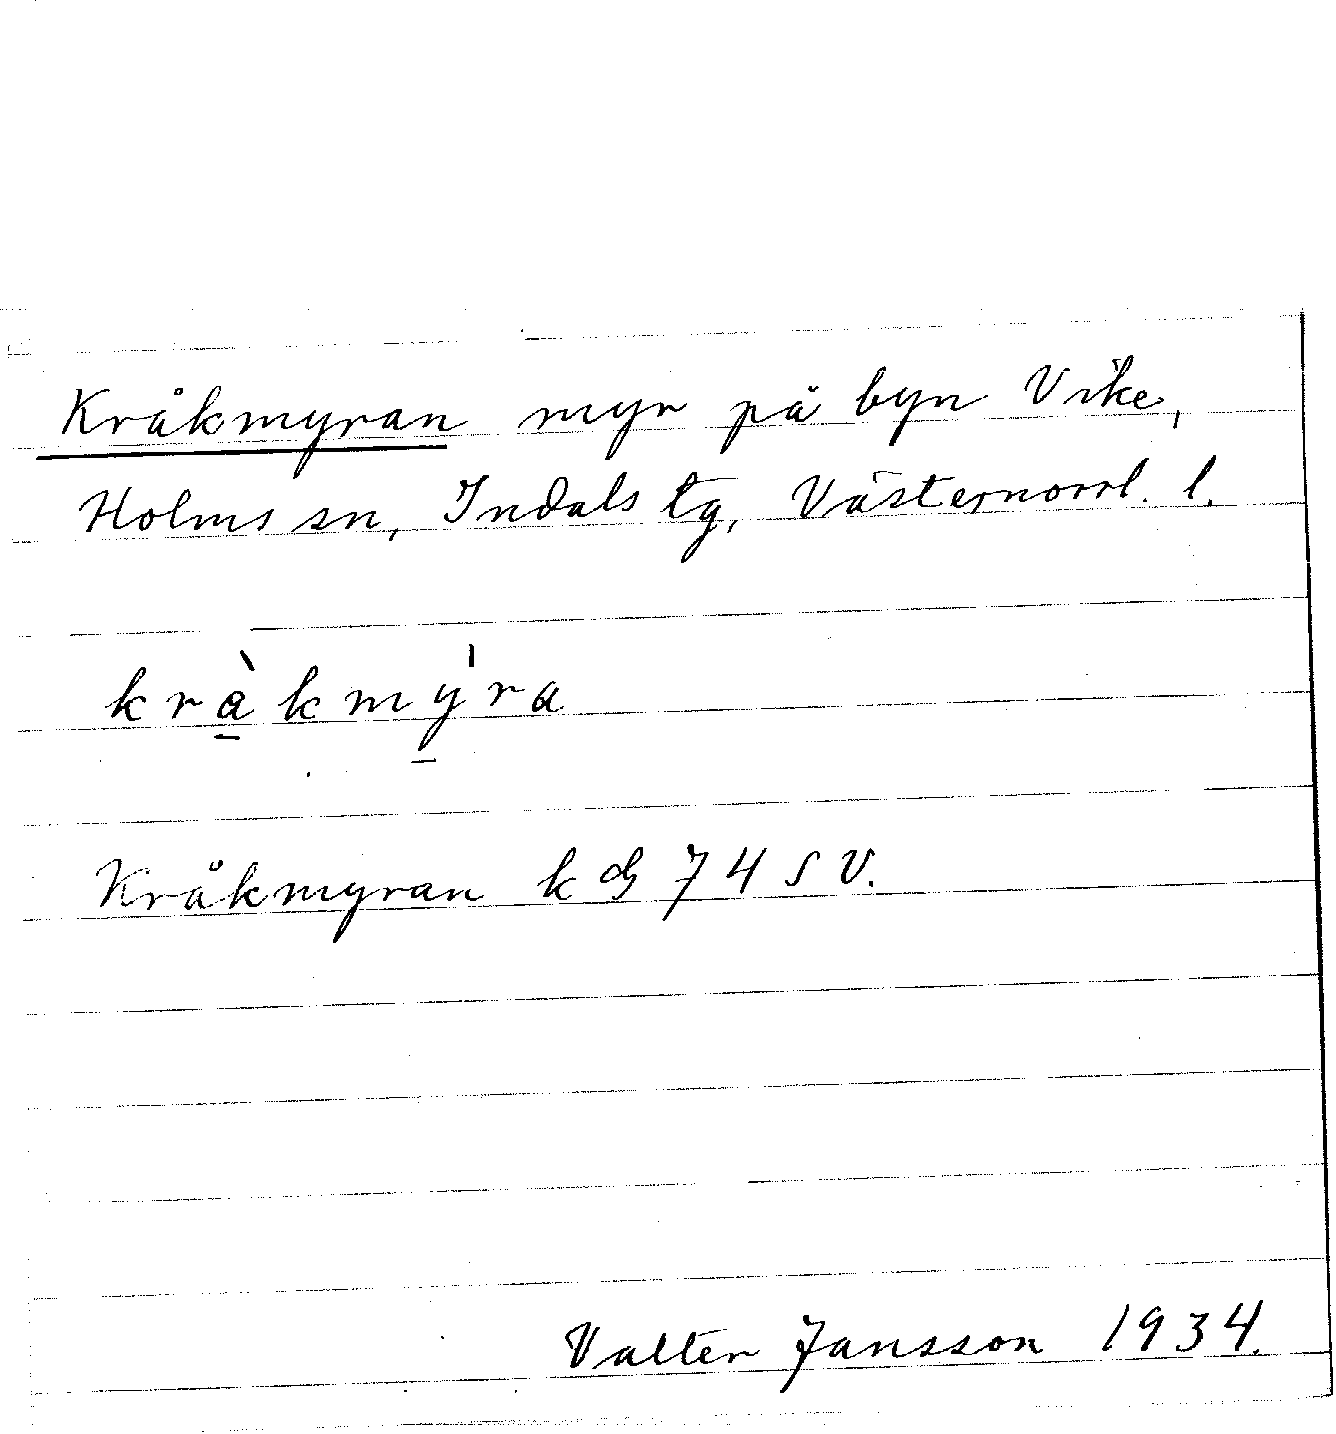 Kråkmyran myr på byn Vike,
Holms sn, Indals tg, Västernorrl. l.
kràkmy̍ra
Kråkmyran k dg 74 SV.
Valter Jansson 1934.